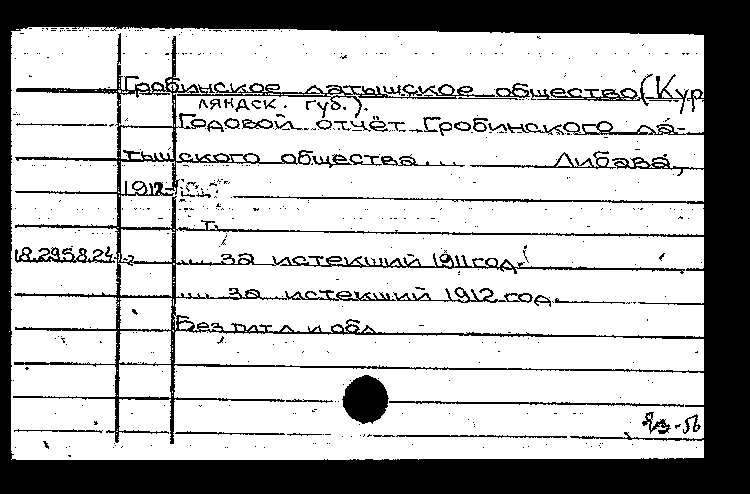 Гробинское латышское общество (Кур
ляндск. губ.).
Годовой отчёт Гробинского ла-
тышского общества... Либава,
1912-
т.
18.2958.24 1-2 .... за истекший 1911 год.
.... за истекший 1912 год.
Без тит. л. и обл.
-56